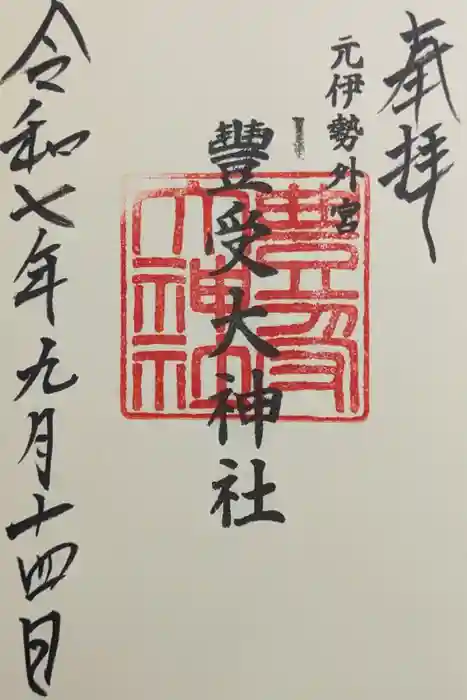 奉拝
元伊勢外宮
豊受大神社
令和七年九月十四日